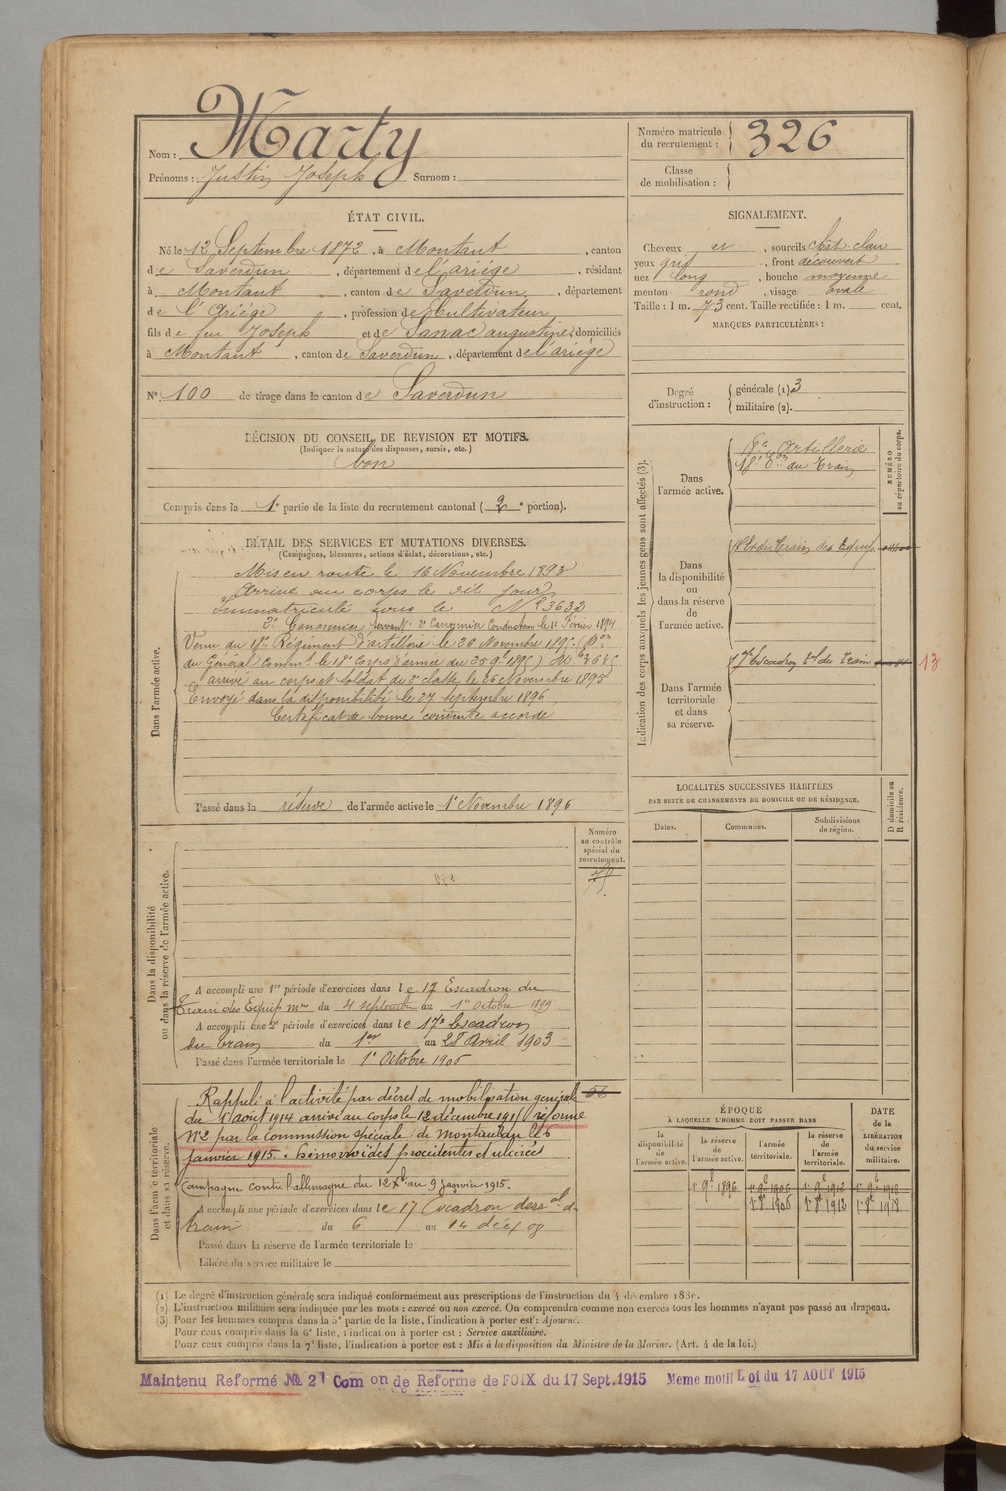 Nom : Marty
Prénoms : Justin Joseph Surnom :
Numéro matricule du recrutement : 326
Classe de mobilisation :
ÉTAT CIVIL.
Né le 12 Septembre 1872, à Montaut, canton
de Saverdun, département de l'ariège, résidant
à Montaut, canton de Saverdun, département
de l'Ariège, profession de Cultivateur
fils de feu Joseph et de Sanac augustine, domiciliés
à Montaut, canton de Saverdun, département de l'ariège
N° 100 de tirage dans le canton de Saverdun
SIGNALEMENT.
Cheveux et, sourcils chât. clair
yeux gris, front découvert
nez long, bouche moyenne
menton rond, visage ovale
Taille : 1 m. 73 cent. Taille rectifiée : 1 m. cent.
MARQUES PARTICULIÈRES :
Degré d'instruction : générale (1) 3
militaire (2).
DÉCISION DU CONSEIL DE REVISION ET MOTIFS.
(Indiquer la nature des dispenses, sursis, etc.)
bon
Compris dans la 1e partie de la liste du recrutement cantonal (2e portion).
DÉTAIL DES SERVICES ET MUTATIONS DIVERSES.
(Campagnes, blessures, actions d'éclat, décorations, etc.)
Dans l'armée active.
Mis en route le 16 Novembre 1893
Arrivé au corps le dit jour
Immatriculé sous le N° 3632
2e Canonnier servant. 2e Canonnier Conducteur le 11 Février 1894
Venu du 18e Régiment d'artillerie le 26 Novembre 1895 (Don
du Général Commt le 18e Corps d'armée du 25 9bre 1895)
arrivé au corps et soldat de 2e classe le 26 Novembre 1895
Envoyé dans la disponibilité le 27 septembre 1896
Certificat de bonne conduite accordé
Passé dans la réserve de l'armée active le 1e Novembre 1896
Indication des corps auxquels les jeunes gens sont affectés (3).
NUMÉRO au répertoire du corps.
Dans l'armée active.
18e Artillerie
18e Eon du Train
Dans la disponibilité ou dans la réserve de l'armée active.
17e Eon du Train des Equip.
Dans l'armée territoriale et dans sa réserve.
17e Escadron Tal du Train
13
LOCALITÉS SUCCESSIVES HABITÉES
PAR SUITE DE CHANGEMENTS DE DOMICILE OU DE RÉSIDENCE.
Dates. Communes. Subdivisions de région. D domicile ou R résidence.
Numéro au contrôle spécial du recrutement.
Dans la disponibilité ou dans la réserve de l'armée active.
A accompli une 1re période d'exercices dans le 17 Escadron du
Train des Equip mres du 4 septembre au 1er Octobre 1899
A accompli une 2e période d'exercices dans le 17e Escadron
du train du 1er au 28 Avril 1903
Passé dans l'armée territoriale le 1e Octobre 1906
Dans l'armée territoriale et dans sa réserve.
Rappelé à l'activité par décret de mobilisation générale 56
du 1er août 1914 arrivé au corps le 12 décembre 1914 réformé
N°2 par la commission spéciale de Montauban le 6
janvier 1915. hémorroïdes procidentes et ulcérées
Campagne contre l'allemagne du 12 Xbre au 9 janvier 1915.
A accompli une période d'exercices dans le 17 Escadron
train du 6 au 14 déc. 08
Passé dans la réserve de l'armée territoriale le
Libéré du service militaire le
ÉPOQUE
À LAQUELLE L'HOMME DOIT PASSER DANS
DATE de la LIBÉRATION du service militaire.
la disponibilité de l'armée active. la réserve de l'armée active. l'armée territoriale. la réserve de l'armée territoriale.
1 9bre 1896 1 9bre 1906 1 9bre 1912 1 9bre 1918
1 8bre 1906 1 8bre 1912 1 8bre 1918
(1) Le degré d'instruction générale sera indiqué conformément aux prescriptions de l'instruction du 4 décembre 1889.
(2) L'instruction militaire sera indiquée par les mots : exercé ou non exercé. On comprendra comme non exercés tous les hommes n'ayant pas passé au drapeau.
(3) Pour les hommes compris dans la 5e partie de la liste, l'indication à porter est : Ajourné.
Pour ceux compris dans la 6e liste, l'indication à porter est : Service auxiliaire.
Pour ceux compris dans la 7e liste, l'indication à porter est : Mis à la disposition du Ministre de la Marine. (Art. 4 de la loi.)
Maintenu Reformé № 2 Com on de Reforme de FOIX du 17 Sept. 1915 Meme motif Loi du 17 AOUT 1915